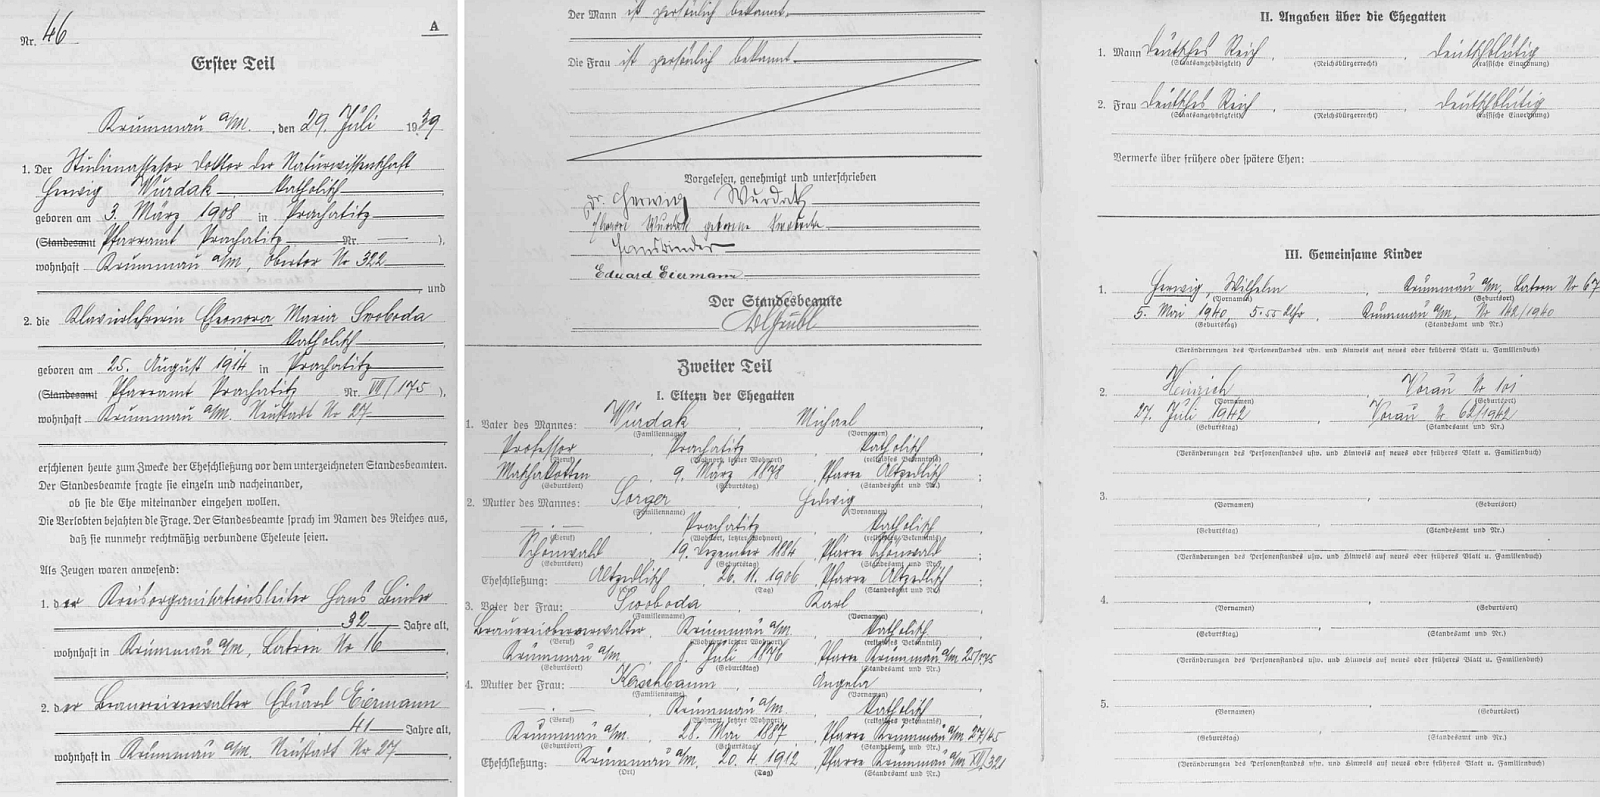 Nr. 46
A
Erster Teil
Krummau a/M. , den 29. Juli 1939
1. Der Studienassessor Doktor der Naturwissenschaft
Herwig Wurdak Katholisch
geboren am 3. März 1908 in Prachatitz
(Standesamt Pfarramt Prachatitz Nr. ),
wohnhaft Krummau a/M, Obertor Nr 322
und
2. die Klavierlehrerin Eleonora Maria Swoboda
Katholisch
geboren am 25. August 1914 in Prachatitz
(Standesamt Pfarramt Prachatitz Nr. VII/175 ),
wohnhaft Krummau a/M. Neustadt Nr 27
erschienen heute zum Zwecke der Eheschließung vor dem unterzeichneten Standesbeamten.
Der Standesbeamte fragte sie einzeln und nacheinander,
ob sie die Ehe miteinander eingehen wollen.
Die Verlobten bejahten die Frage. Der Standesbeamte sprach im Namen des Reiches aus,
daß sie nunmehr rechtmäßig verbundene Eheleute seien.
Als Zeugen waren anwesend:
1. der Kreisorganisationsleiter Hans Binder
32 Jahre alt,
wohnhaft in Krummau a/M, Latron Nr 16
2. der Brauereiverwalter Eduard Eiermann
41 Jahre alt,
wohnhaft in Krummau a/M. Neustadt Nr 27
Der Mann ist persönlich bekannt.
Die Frau ist persönlich bekannt.
Vorgelesen, genehmigt und unterschrieben
Dr. Herwig Wurdak
Wurdak geborene Swoboda
Hans Binder
Eduard Eiermann
Der Standesbeamte
Zweiter Teil
I. Eltern der Ehegatten
1. Vater des Mannes: Wurdak , Michael ,
(Familienname) (Vornamen)
Professor , Prachatitz , Katholisch ,
(Beruf) (Wohnort, letzter Wohnort) (religiöses Bekenntnis)
, 9. März 1878 , Pfarre Altzedlisch ;
(Geburtsort) (Geburtstag) (Standesamt und Nr.)
2. Mutter des Mannes: Sorger , Hedwig ,
(Familienname) (Vornamen)
—.— , Prachatitz , Katholisch ,
(Beruf) (Wohnort, letzter Wohnort) (religiöses Bekenntnis)
Schönwald , 19. Dezember 1884 , Pfarre Schönwald ;
(Geburtsort) (Geburtstag) (Standesamt und Nr.)
Eheschließung: Altzedlisch , 26. 11. 1906 , Pfarre Altzedlisch ;
(Tag) (Standesamt und Nr.)
3. Vater der Frau: Swoboda , Karl ,
(Familienname) (Vornamen)
Brauereioberverwalter , Krummau a/M. , Katholisch ,
(Beruf) (Wohnort, letzter Wohnort) (religiöses Bekenntnis)
Krummau a/M. , Juli 1876 , Pfarre Krummau a/M. 25/175 ;
(Geburtsort) (Geburtstag) (Standesamt und Nr.)
4. Mutter der Frau: Kerschbaum , Angela ,
(Familienname) (Vornamen)
—.— , Krummau a/M. , Katholisch ,
(Beruf) (Wohnort, letzter Wohnort) (religiöses Bekenntnis)
Krummau a/M. , 28. Mai 1887 , Pfarre Krummau a/M. 27/65 ;
(Geburtsort) (Geburtstag) (Standesamt und Nr.)
Eheschließung: Krummau a/M. , 20. 4. 1912 , Pfarre Krummau a/M XVI/321
(Ort) (Tag) (Standesamt und Nr.)
II. Angaben über die Ehegatten
1. Mann Deutsches Reich , , deutschblütig
(Staatsangehörigkeit) (Reichsbürgerrecht) (rassische Einordnung)
2. Frau Deutsches Reich , , deutschblütig
(Staatsangehörigkeit) (Reichsbürgerrecht) (rassische Einordnung)
Vermerke über frühere oder spätere Ehen:
III. Gemeinsame Kinder
1. Herwig, Wilhelm , Krummau a/M, Latron Nr 67
(Vornamen) (Geburtsort)
5. Mai 1940, 5.55 Uhr , Krummau a/M, Nr 142/1940
(Geburtstag) (Standesamt und Nr.)
(Veränderungen des Personenstandes usw. und Hinweis auf neues oder früheres Blatt u. Familienbuch)
2. Heinrich , Vorau Nr 101
(Vornamen) (Geburtsort)
27. Juli 1942 , Vorau Nr. 62/1942
(Geburtstag) (Standesamt und Nr.)
(Veränderungen des Personenstandes usw. und Hinweis auf neues oder früheres Blatt u. Familienbuch)
3.
(Vornamen) (Geburtsort)
(Geburtstag) (Standesamt und Nr.)
(Veränderungen des Personenstandes usw. und Hinweis auf neues oder früheres Blatt u. Familienbuch)
4.
(Vornamen) (Geburtsort)
(Geburtstag) (Standesamt und Nr.)
(Veränderungen des Personenstandes usw. und Hinweis auf neues oder früheres Blatt u. Familienbuch)
5.
(Vornamen) (Geburtsort)
(Geburtstag) (Standesamt und Nr.)
(Veränderungen des Personenstandes usw. und Hinweis auf neues oder früheres Blatt u. Familienbuch)